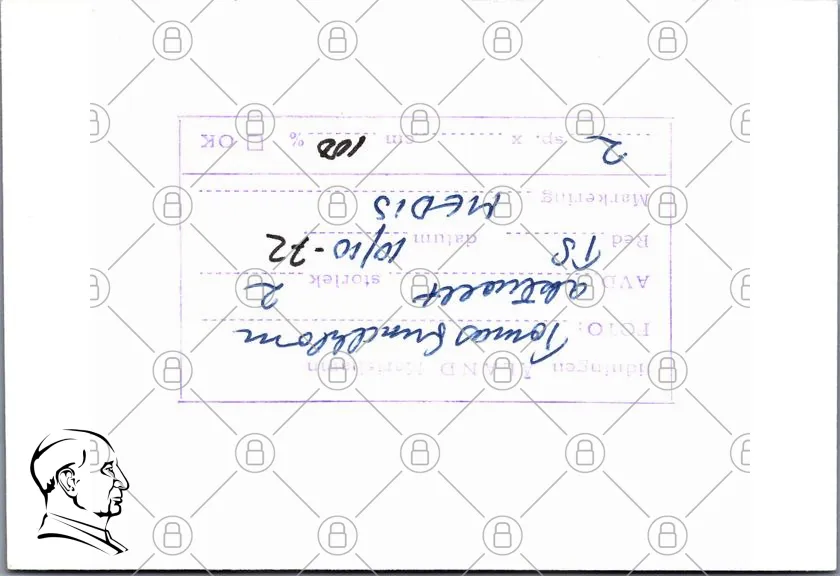 Tidningen ÅLAND Mariehamn
FOTO: Tomas Grundblom
AVD aktuellt storlek 2
Red TS datum 10/10-72
Markering MEDIS
2 sp. x cm 100 % OK